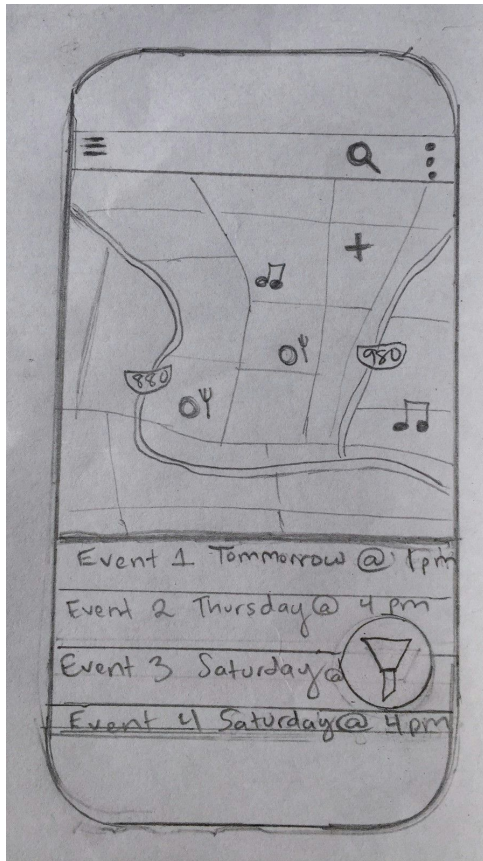 980
880
Event 1 Tommorrow @ 1pm
Event 2 Thursday @ 4 pm
Event 3 Saturday @
Event 4 Saturday @ 4pm